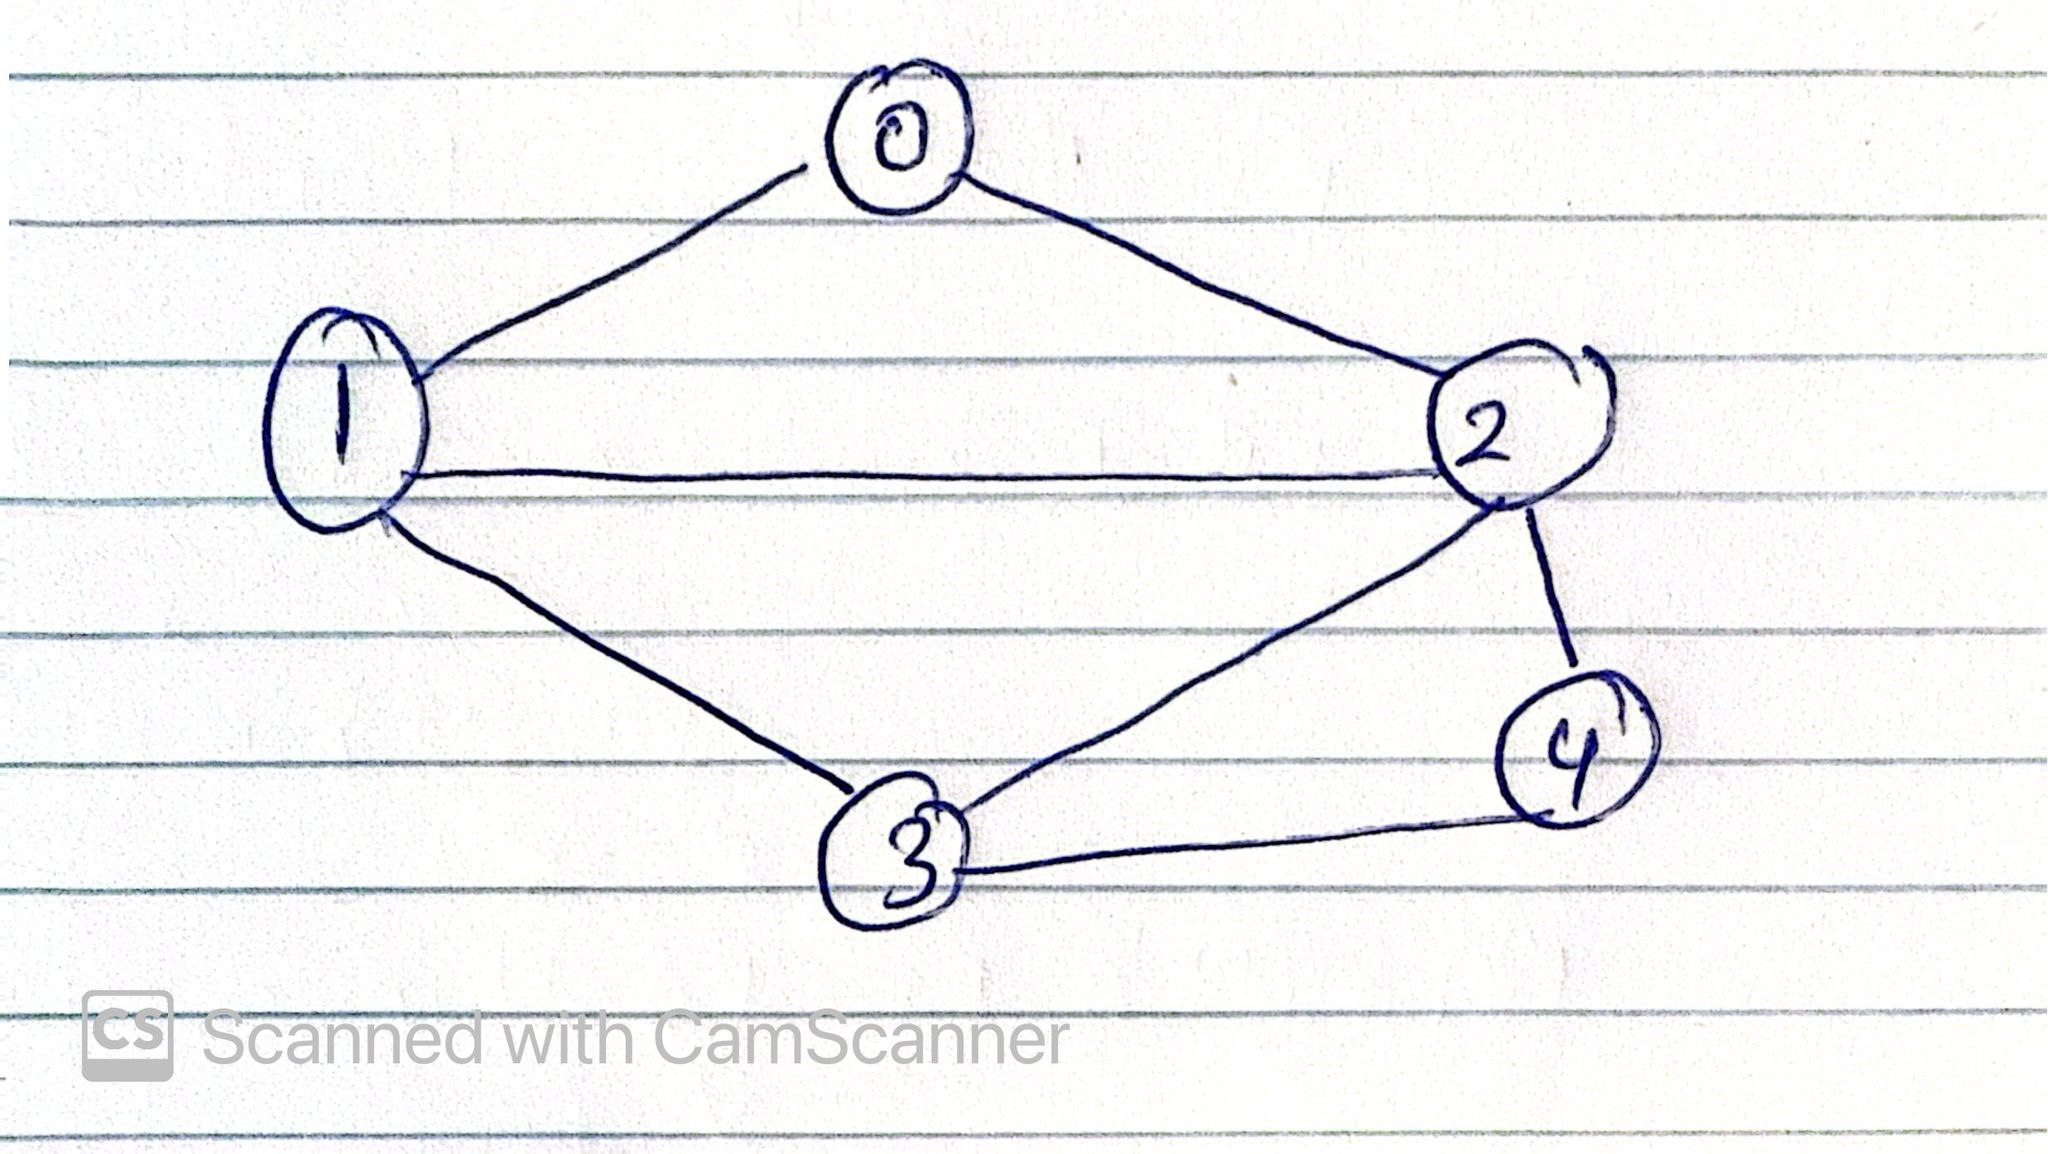 0
1
2
4
3
CS Scanned with CamScanner